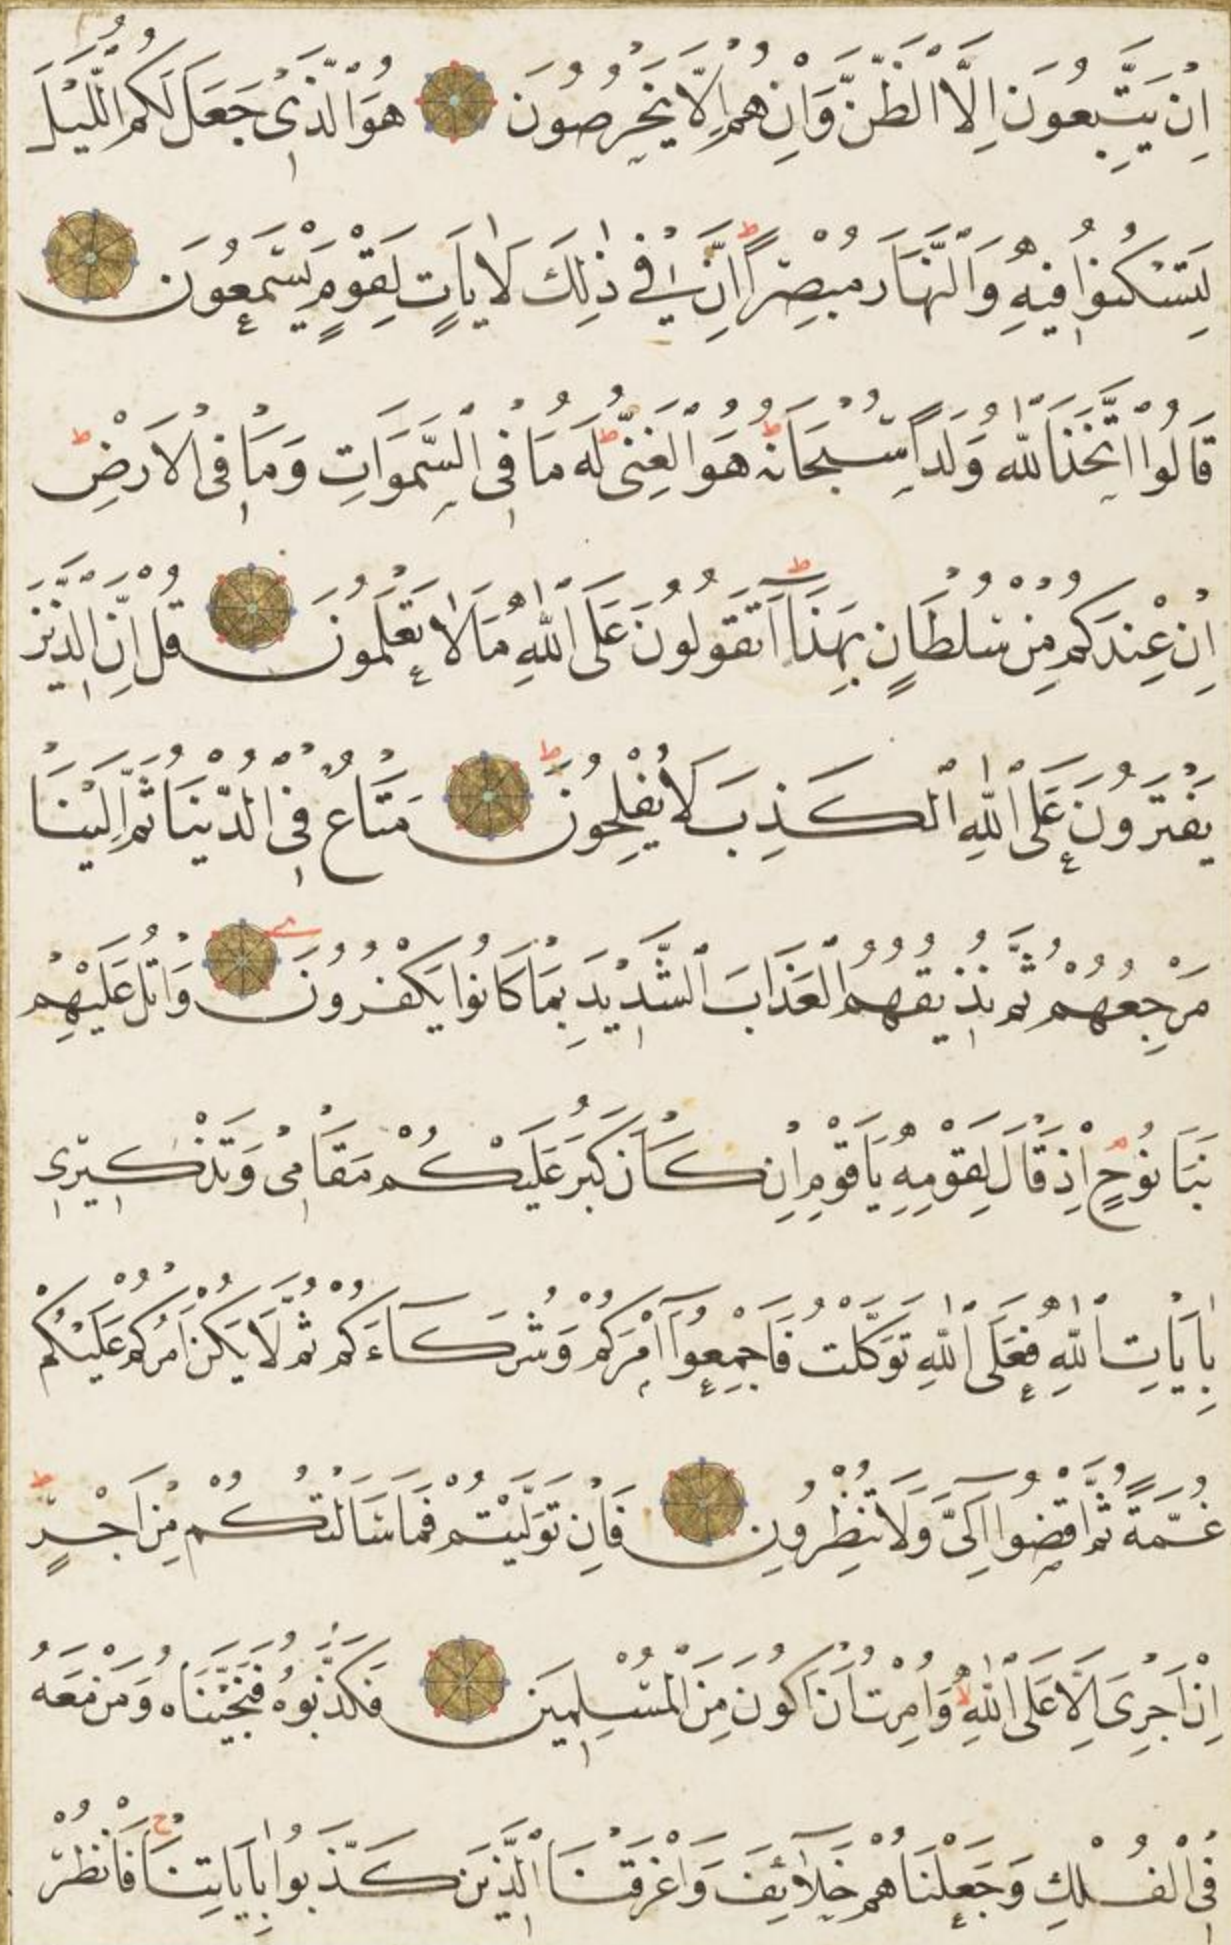 اِنْ يَتَّبِعُونَ اِلَّا الظَّنَّ وَاِنْ هُمْ اِلَّا يَخْرُصُونَ هُوَ الَّذٖى جَعَلَ لَكُمُ الَّيْلَ
لِتَسْكُنُوا فٖيهِ وَالنَّهَارَ مُبْصِرًا ط اِنَّ فٖى ذٰلِكَ لَاٰيَاتٍ لِقَوْمٍ يَسْمَعُونَ
قَالُوا اتَّخَذَ اللّٰهُ وَلَدًا سُبْحَانَهُ ط هُوَ الْغَنِىُّ ط لَهُ مَا فِى السَّمٰوَاتِ وَمَا فِى الْاَرْضِ ط
اِنْ عِنْدَكُمْ مِنْ سُلْطَانٍ بِهٰذَا ط اَتَقُولُونَ عَلَى اللّٰهِ مَا لَا تَعْلَمُونَ قُلْ اِنَّ الَّذٖينَ
يَفْتَرُونَ عَلَى اللّٰهِ الْكَذِبَ لَا يُفْلِحُونَ ط مَتَاعٌ فِى الدُّنْيَا ثُمَّ اِلَيْنَا
مَرْجِعُهُمْ ثُمَّ نُذٖيقُهُمُ الْعَذَابَ الشَّدٖيدَ بِمَا كَانُوا يَكْفُرُونَ وَاتْلُ عَلَيْهِمْ
نَبَاَ نُوحٍ م اِذْ قَالَ لِقَوْمِهٖ يَا قَوْمِ اِنْ كَانَ كَبُرَ عَلَيْكُمْ مَقَامٖى وَتَذْكٖيرٖى
بِاٰيَاتِ اللّٰهِ فَعَلَى اللّٰهِ تَوَكَّلْتُ فَاَجْمِعُوٓا اَمْرَكُمْ وَشُرَكَآءَكُمْ ثُمَّ لَا يَكُنْ اَمْرُكُمْ عَلَيْكُمْ
غُمَّةً ثُمَّ اقْضُوٓا اِلَىَّ وَلَا تُنْظِرُونِ فَاِنْ تَوَلَّيْتُمْ فَمَا سَاَلْتُكُمْ مِنْ اَجْرٍ ط
اِنْ اَجْرِىَ اِلَّا عَلَى اللّٰهِ لا وَاُمِرْتُ اَنْ اَكُونَ مِنَ الْمُسْلِمٖينَ فَكَذَّبُوهُ فَنَجَّيْنَاهُ وَمَنْ مَعَهُ
فِى الْفُلْكِ وَجَعَلْنَاهُمْ خَلَآئِفَ وَاَغْرَقْنَا الَّذٖينَ كَذَّبُوا بِاٰيَاتِنَا ج فَانْظُرْ